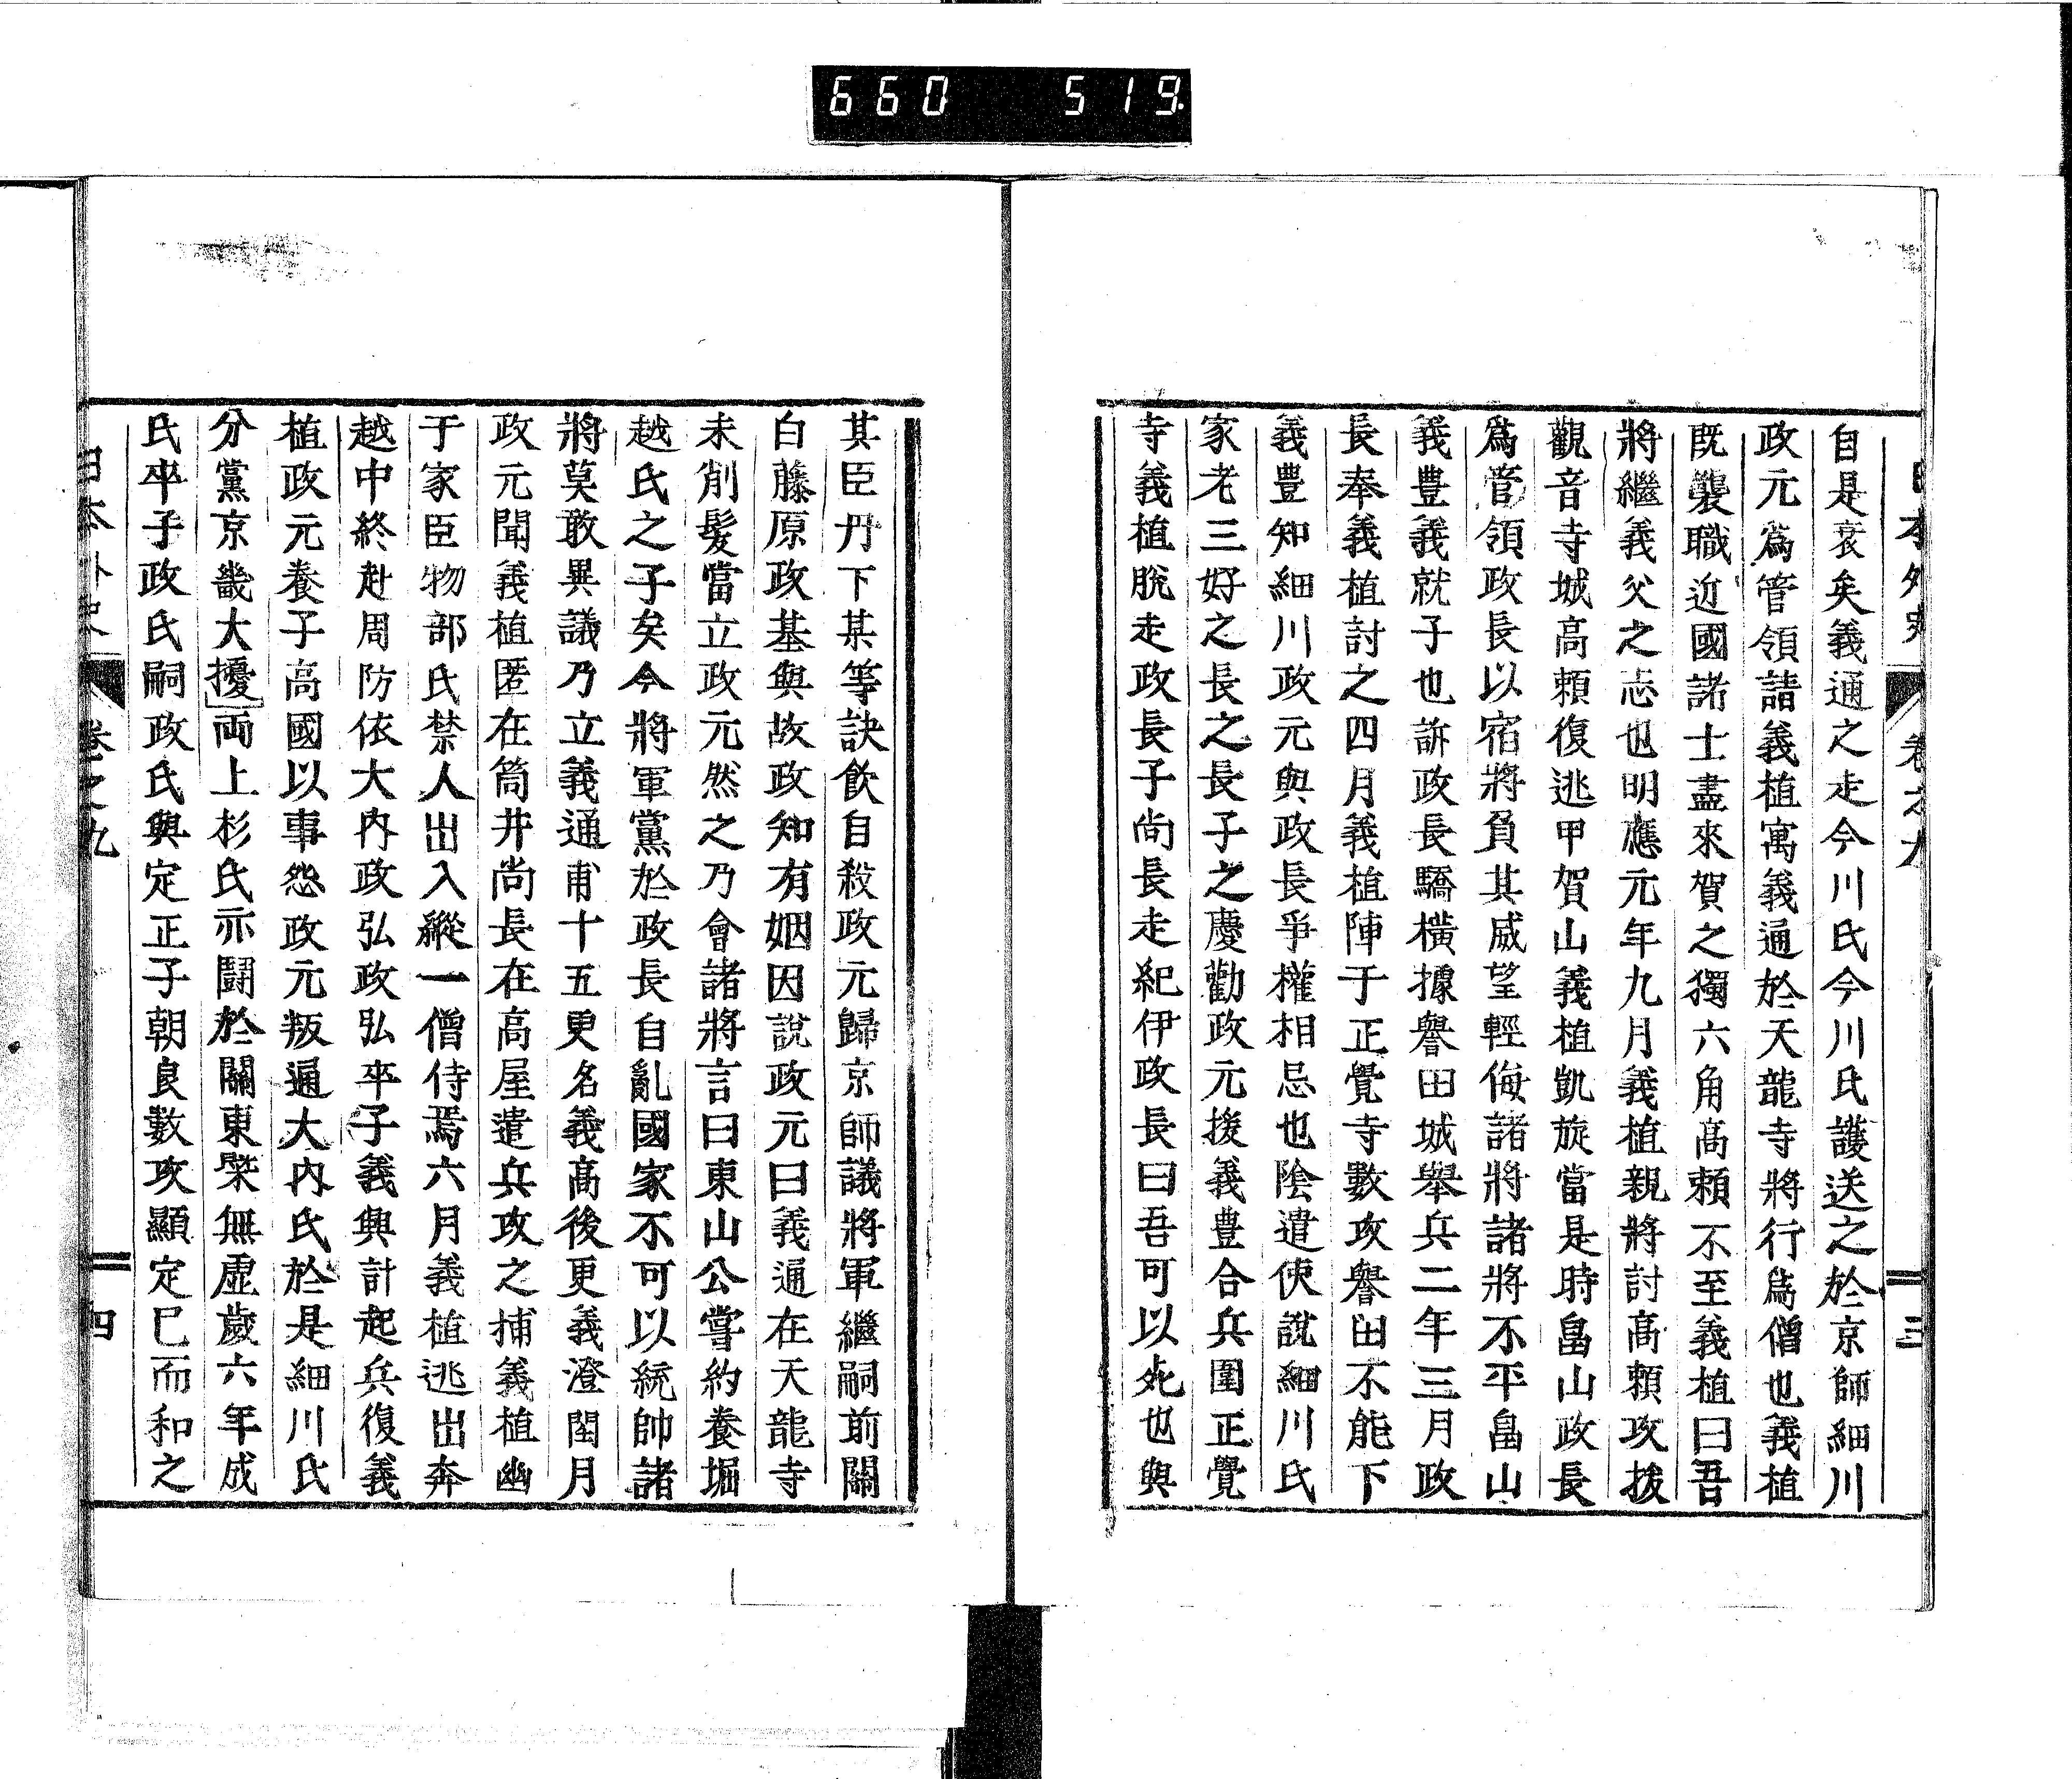 660 519.
日本外史 卷之九 三
自是衰矣義通之走今川氏今川氏護送之於京師細川
政元爲管領請義植寓義通於天龍寺將行爲僧也義植
既襲職近國諸士盡來賀之獨六角高賴不至義植曰吾
將繼義父之志也明應元年九月義植親將討高賴攻拔
觀音寺城高賴復逃甲賀山義植凱旋當是時畠山政長
爲管領政長以宿將負其威望輕侮諸將諸將不平畠山
義豊義就子也訴政長驕橫據譽田城舉兵二年三月政
長奉義植討之四月義植陣于正覺寺數攻譽田不能下
義豊知細川政元與政長爭權相忌也陰遣使說細川氏
家老三好之長之長子之慶勸政元援義豊合兵圍正覺
寺義植脫走政長子尚長走紀伊政長曰吾可以死也與
其臣丹下某等訣飲自殺政元歸京師議將軍繼嗣前關
白藤原政基與故政知有姻因說政元曰義通在天龍寺
未削髮當立政元然之乃會諸將言曰東山公嘗約養堀
越氏之子矣今將軍黨於政長自亂國家不可以統帥諸
將莫敢異議乃立義通甫十五更名義高後更義澄閏月
政元聞義植匿在筒井尚長在高屋遣兵攻之捕義植幽
于家臣物部氏禁人出入縱一僧侍焉六月義植逃出奔
越中終赴周防依大內政弘政弘卒子義興計起兵復義
植政元養子高國以事怨政元叛通大內氏於是細川氏
分黨京畿大擾両上杉氏亦鬪於關東槩無虛歲六年成
氏卒子政氏嗣政氏與定正子朝良數攻顯定已而和之
日本外史 卷之九 四